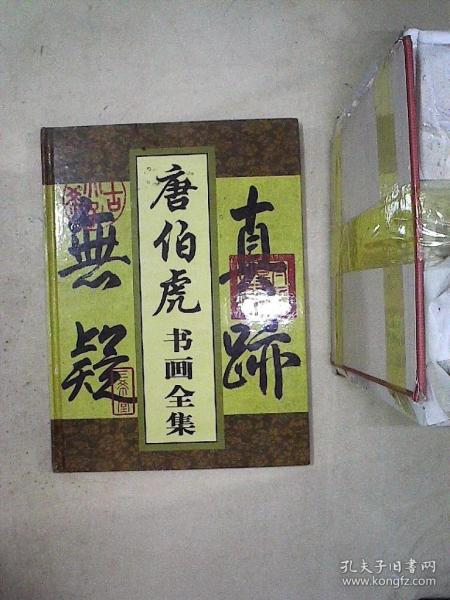 唐伯虎
书画全集
真跡
無疑
孔夫子旧书网
www.kongfz.com